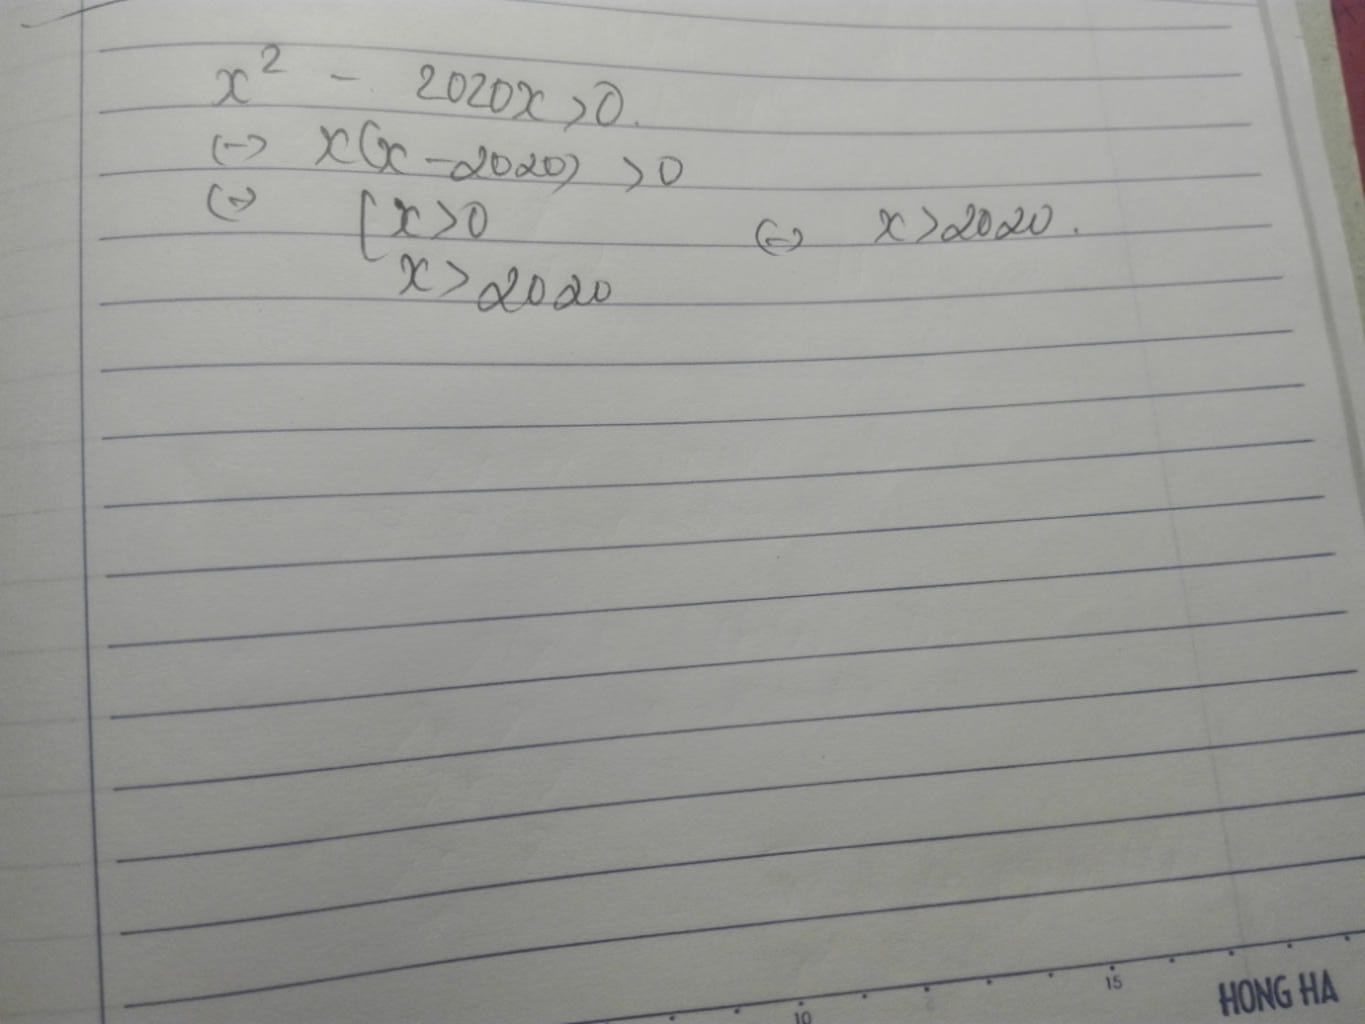 x² - 2020x > 0.
(-) x(x - 2020) > 0
(-) [ x > 0 (-) x > 2020.
x > 2020
10 15 HONG HA